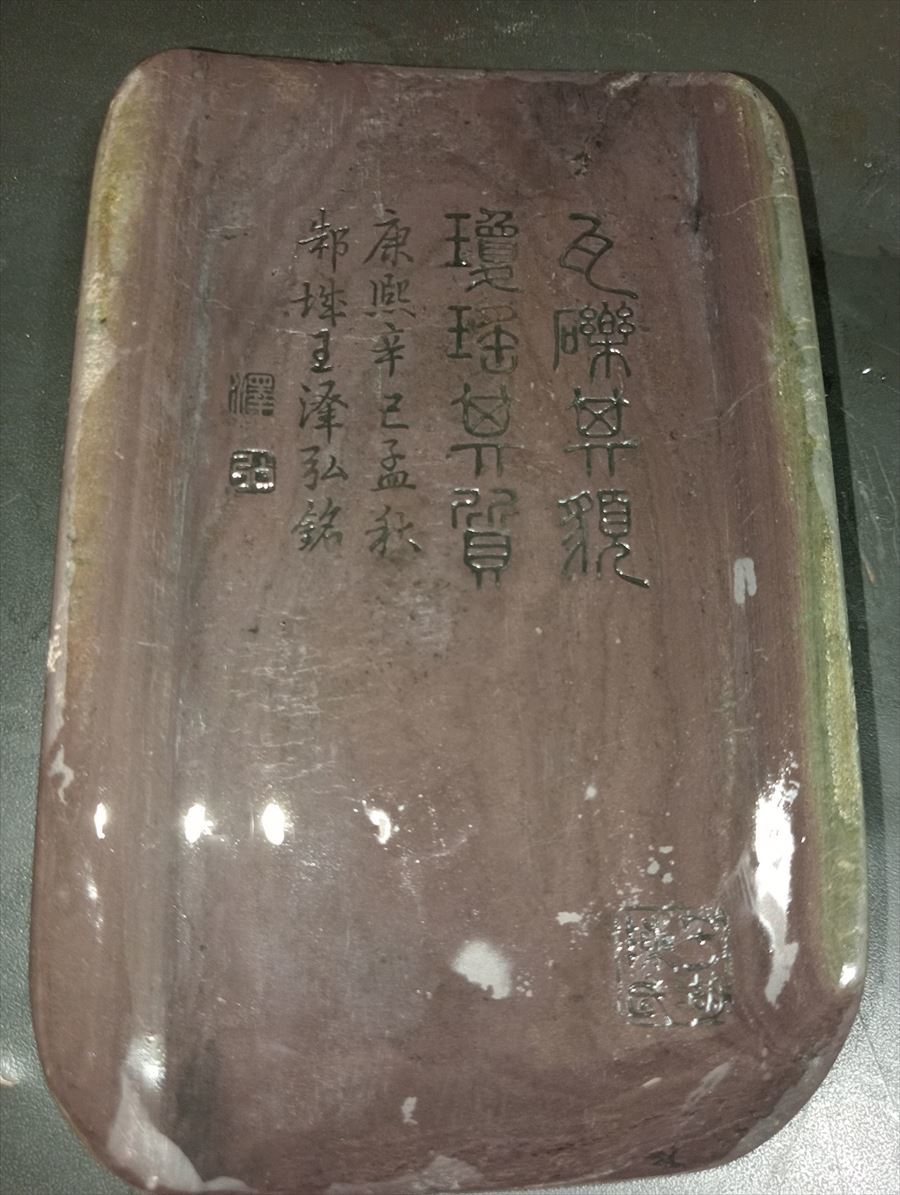 瓦礫其貌
瓊瑤其質
康熙辛巳孟秋
邾城王澤弘銘
澤
弘